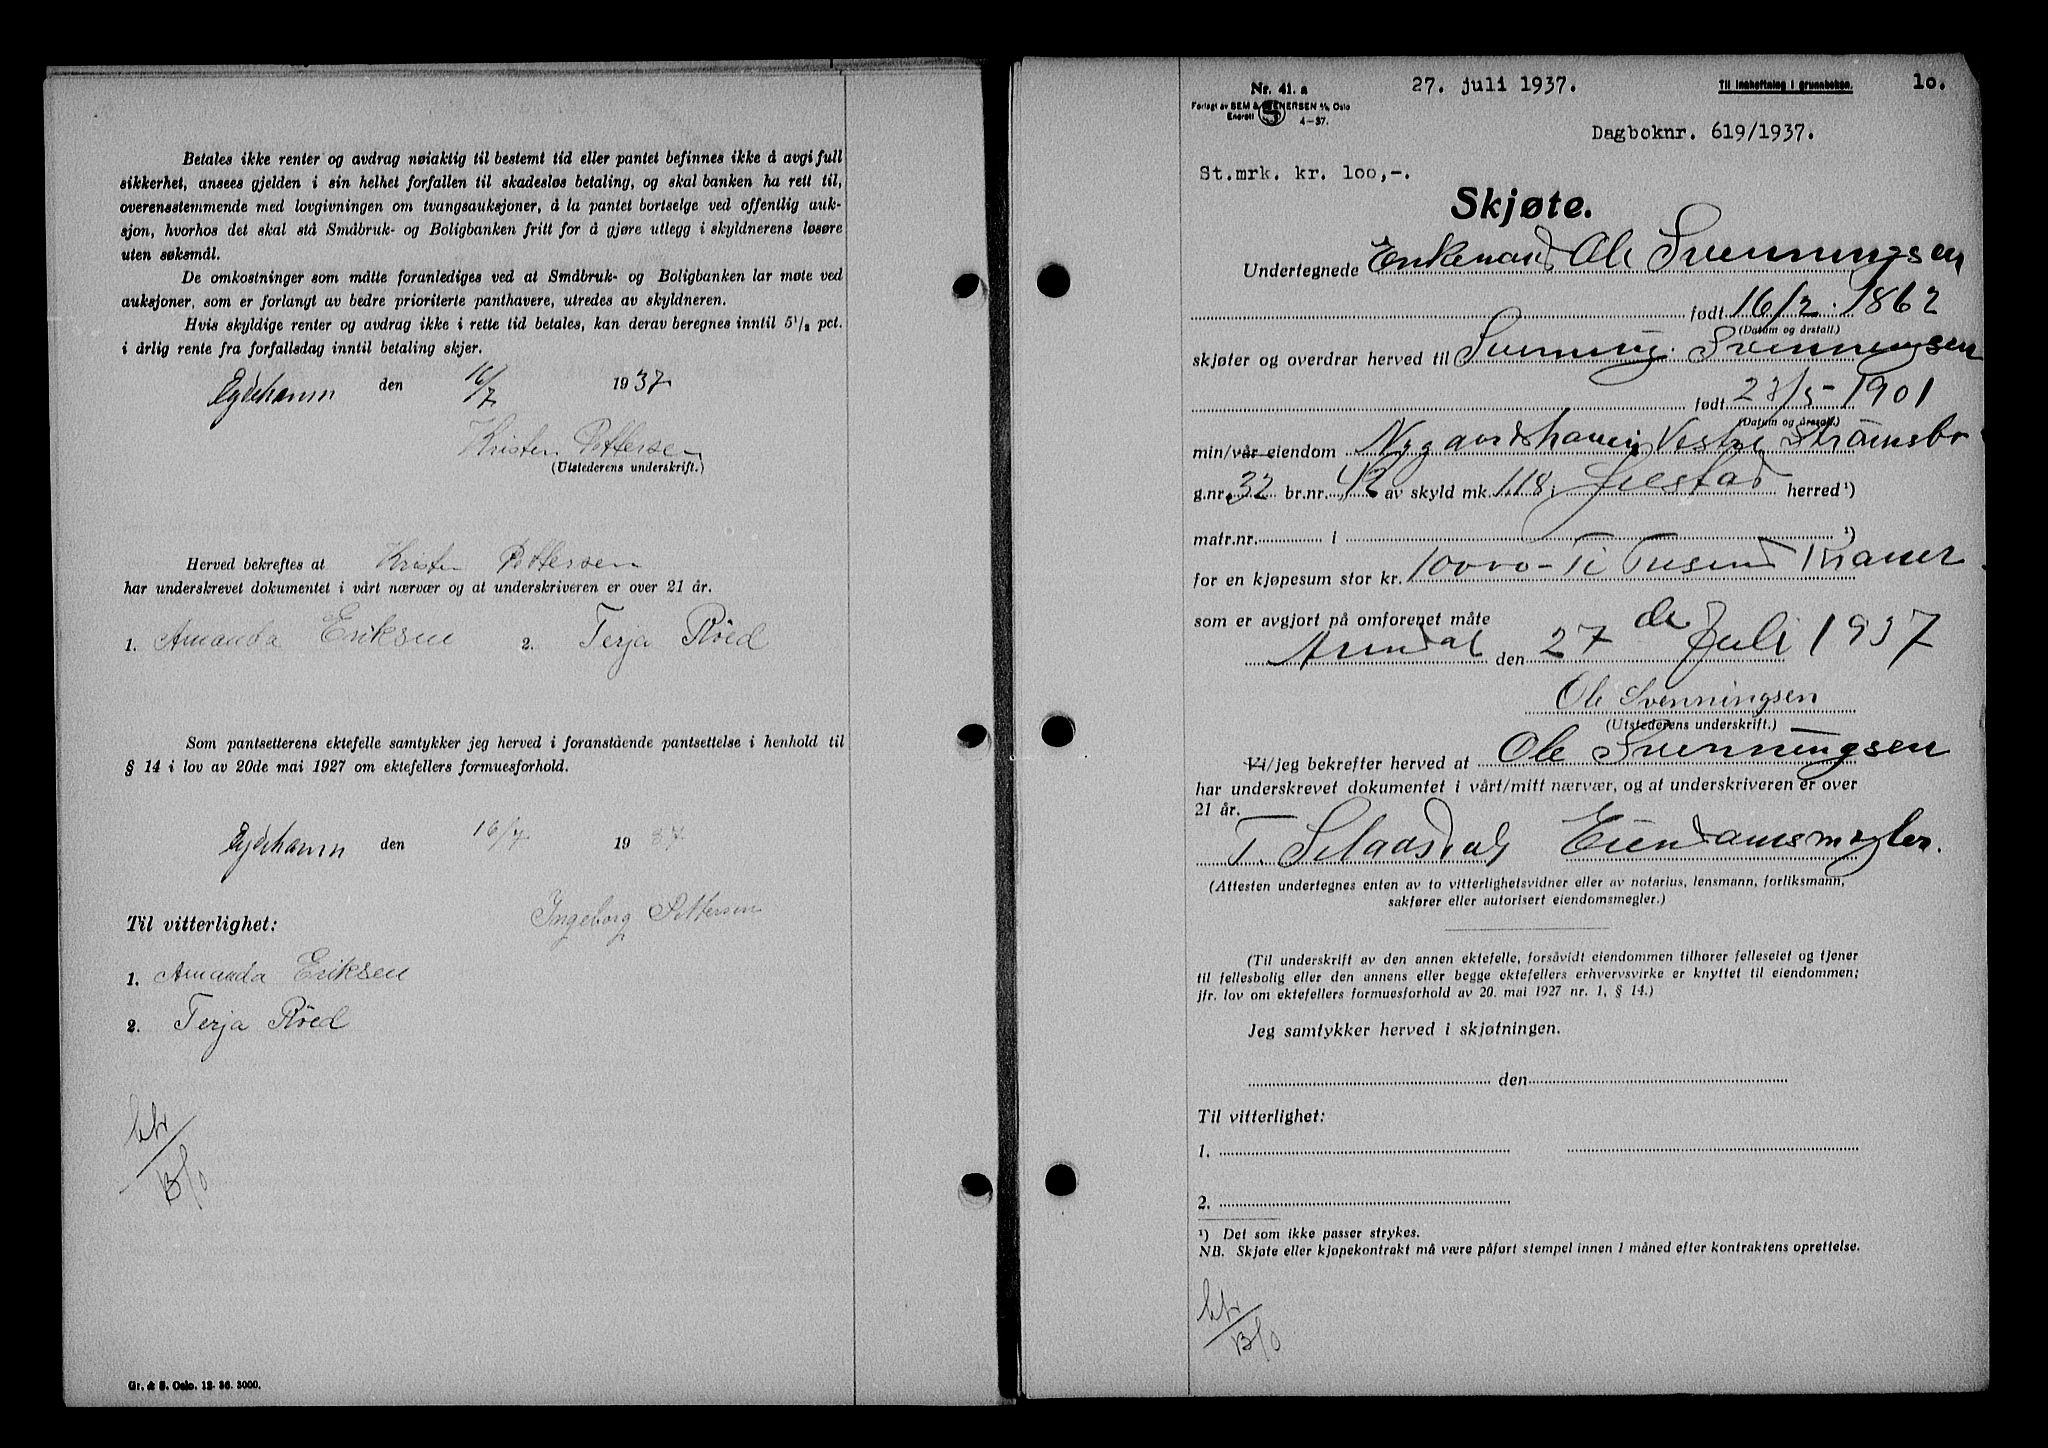 Betales ikke renter og avdrag nøiaktig til bestemt tid eller pantet befinnes ikke å avgi full
sikkerhet, ansees gjelden i sin helhet forfallen til skadesløs betaling, og skal banken ha rett til,
overensstemmende med lovgivningen om tvangsauksjoner, å la pantet bortselge ved offentlig auk-
sjon, hvorhos det skal stå Småbruk- og Boligbanken fritt for å gjøre utlegg i skyldnerens løsøre
uten søksmål.
De omkostninger som måtte foranlediges ved at Småbruk- og Boligbanken lar møte ved
auksjoner, som er forlangt av bedre prioriterte panthavere, utredes av skyldneren.
Hvis skyldige renter og avdrag ikke i rette tid betales, kan derav beregnes inntil 5½ pct.
i årlig rente fra forfallsdag inntil betaling skjer.
Eydehavn den 16/7 1937
Kristen Pettersen
(Utstederens underskrift.)
Herved bekreftes at Kristen Pettersen
har underskrevet dokumentet i vårt nærvær og at underskriveren er over 21 år.
1. Amanda Eriksen 2. Terja Röed
Som pantsetterens ektefelle samtykker jeg herved i foranstående pantsettelse i henhold til
§ 14 i lov av 20de mai 1927 om ektefellers formuesforhold.
Eydehavn den 16/7 1937
Ingeborg Pettersen
Til vitterlighet:
1. Amanda Eriksen
2. Terja Röed
Gr. & S. Oslo. 12-36. 3000.
Nr. 41. a
Forlagt av SEM & STENERSEN A/S, Oslo
Enerett
4-37.
27. juli 1937.
Til innheftning i grunnboken.
10.
Dagboknr. 619/1937.
St.mrk. kr. 100,-.
Skjøte.
Undertegnede Enkemand Ole Svenningsen
født 16/2. 1862
(Datum og årstall.)
skjøter og overdrar herved til Svenning Svenningsen
født 23/5-1901
(Datum og årstall.)
min/vår eiendom Nygaardshaven, Vestre Strømsbo
g.nr. 32 br.nr. 42 av skyld mk. 1.18 i Øiestad herred ¹)
matr.nr. i ¹)
for en kjøpesum stor kr. 10000- Ti Tusend Kroner
som er avgjort på omforenet måte
Arendal den 27de Juli 1937
Ole Svenningsen
(Utstederens underskrift.)
Vi/jeg bekrefter herved at Ole Svenningsen
har underskrevet dokumentet i vårt/mitt nærvær, og at underskriveren er over
21 år.
T. Eiendomsmegler.
(Attesten undertegnes enten av to vitterlighetsvidner eller av notarius, lensmann, forliksmann,
sakfører eller autorisert eiendomsmegler.)
(Til underskrift av den annen ektefelle, forsåvidt eiendommen tilhører felleseiet og tjener
til fellesbolig eller den annens eller begge ektefellers erhvervsvirke er knyttet til eiendommen;
jfr. lov om ektefellers formuesforhold av 20. mai 1927 nr. 1, § 14.)
Jeg samtykker herved i skjøtningen.
den
Til vitterlighet:
1.
2.
¹) Det som ikke passer strykes.
NB. Skjøte eller kjøpekontrakt må være påført stempel innen 1 måned efter kontraktens oprettelse.